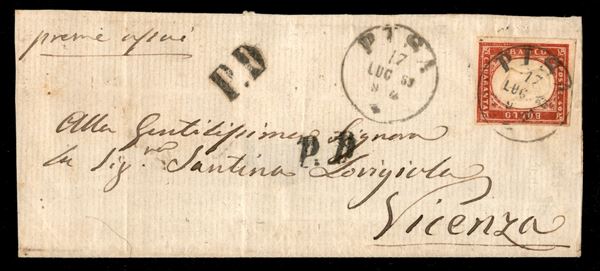 preme assai
P.D
PISA
17
LUG 63
PISA
17
LUG 63
FRANCO
BOLLO
QUARANTA
Alla Gentilissima Signora
la Sig.ra Santina Lovigiola
P.D
Vicenza